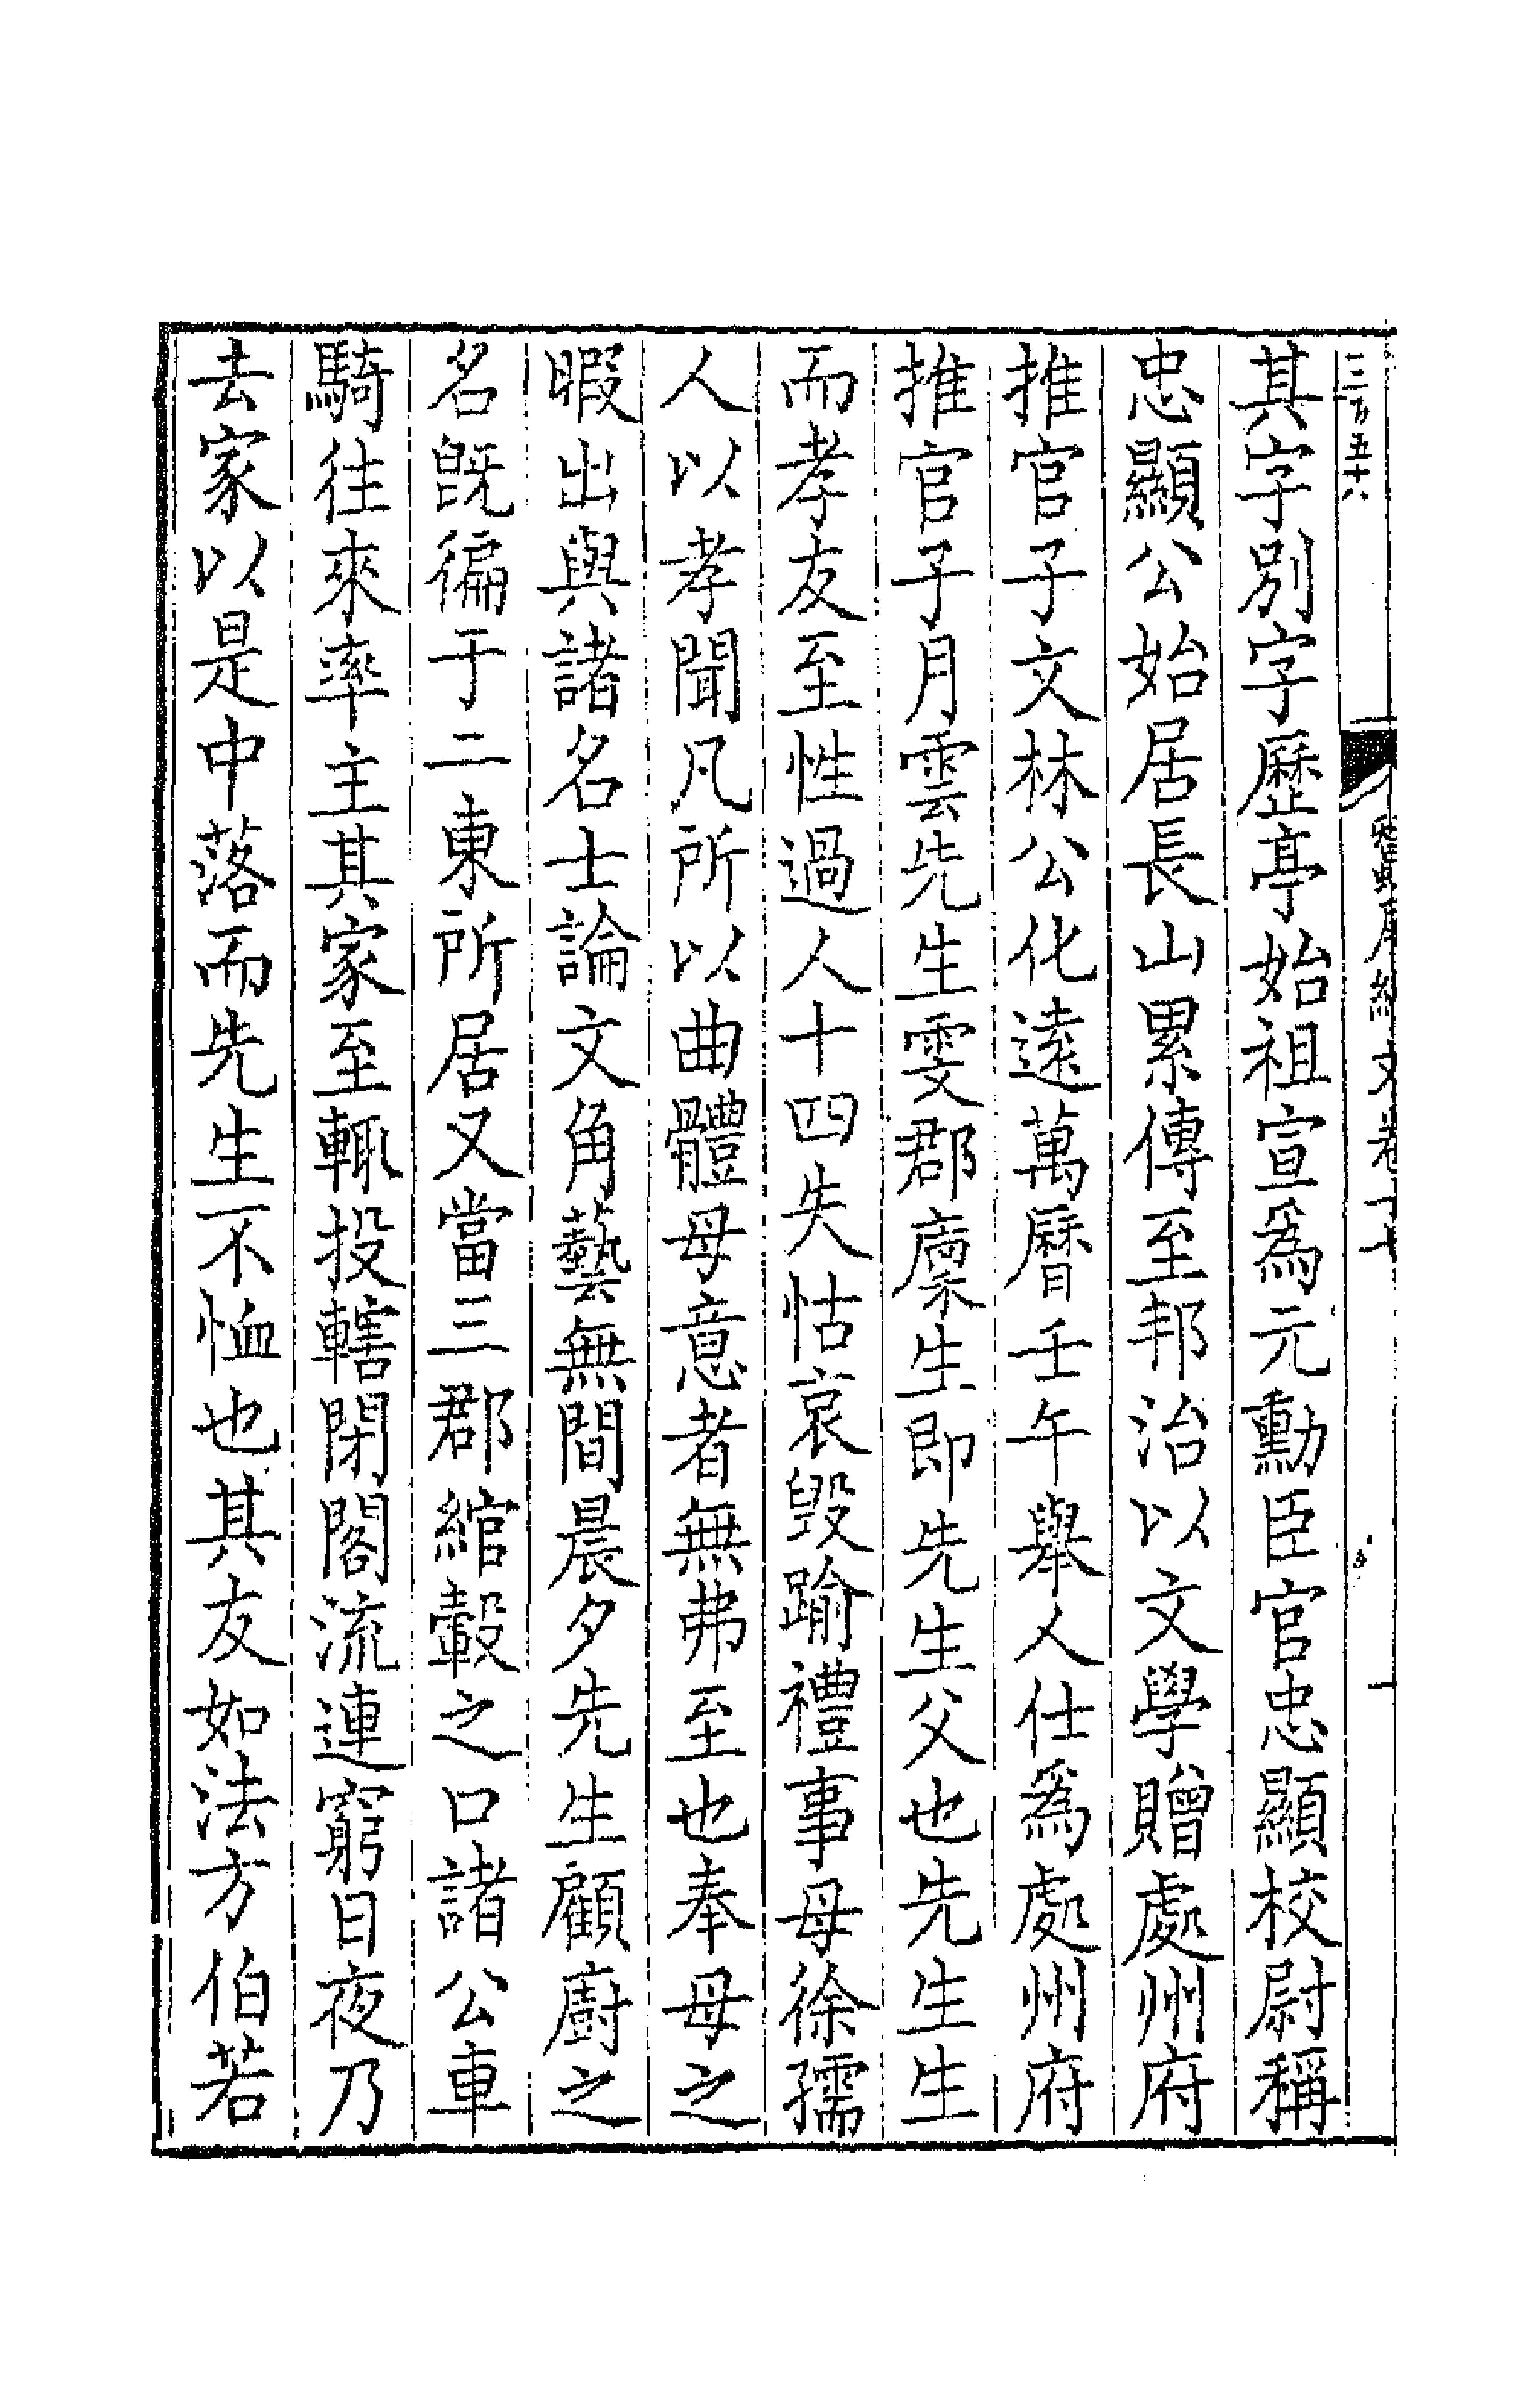 三百五十八
文卷十七
一
其字別字歷亭始祖宣為元勳臣官忠顯校尉稱
忠顯公始居長山累傳至邦治以文學贈處州府
推官子文林公化遠萬曆壬午舉人仕為處州府
推官子月雲先生雯郡廩生即先生父也先生生
而孝友至性過人十四失怙哀毀踰禮事母徐孺
人以孝聞凡所以曲體母意者無弗至也奉母之
暇出與諸名士論文角藝無間晨夕先生顧廚之
名既徧于二東所居又當三郡綰轂之口諸公車
騎往來率主其家至輒投轄閉閣流連窮日夜乃
去家以是中落而先生不恤也其友如法方伯若